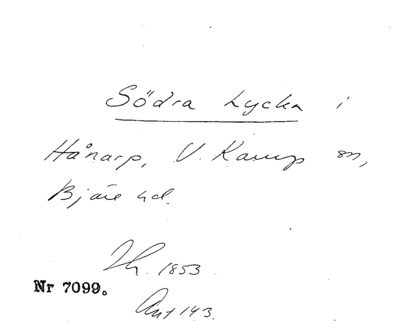 Södra Lycka i
Hånarp, V. Karup sn,
Bjäre hd.
Th. 1853
Nr 7099.
Ant 143.